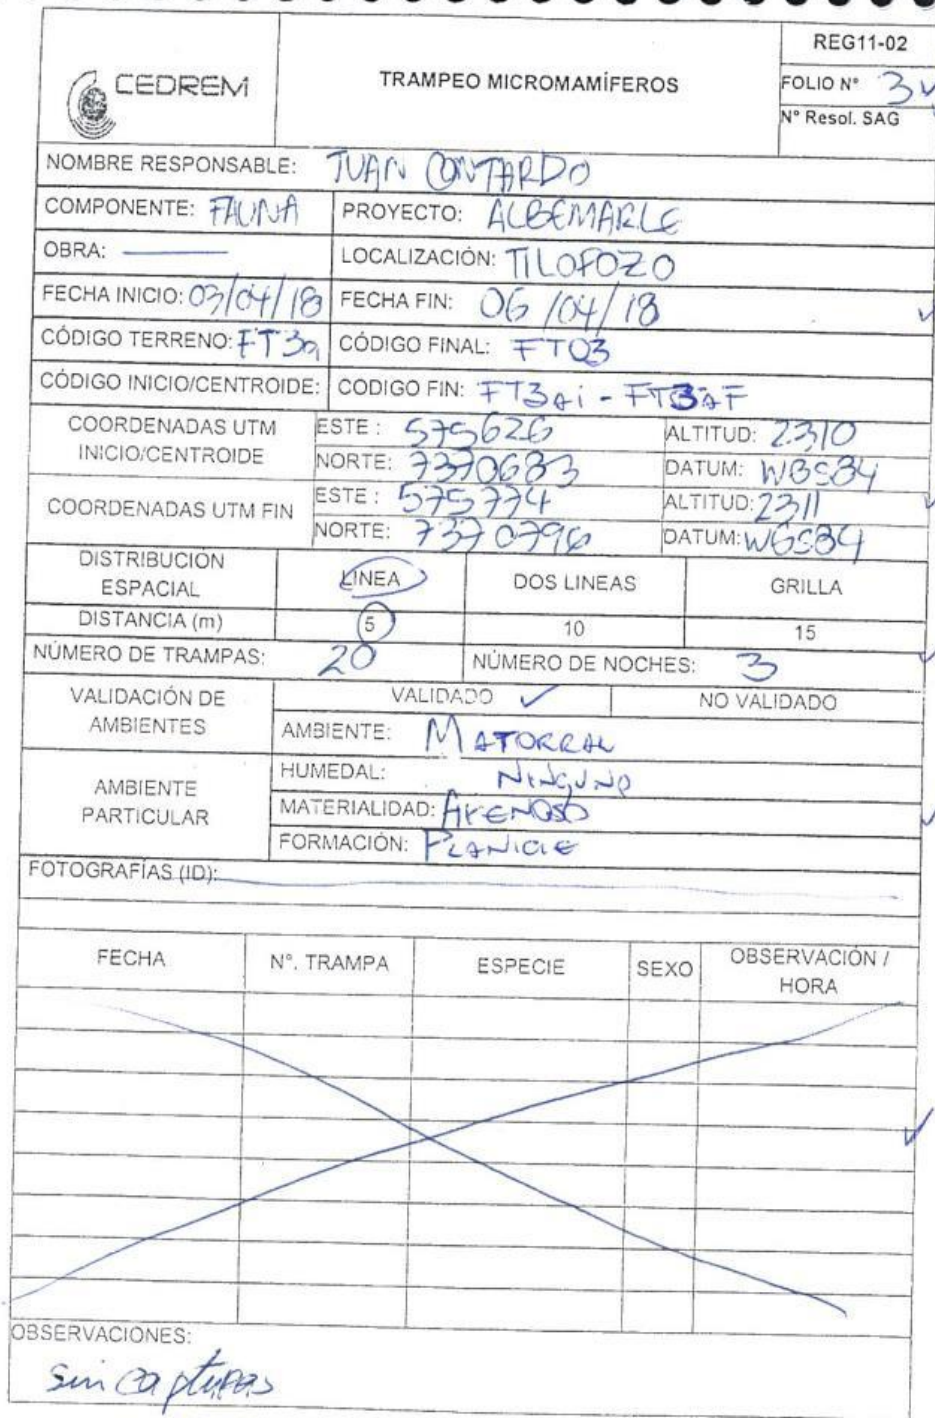 REG11-02
CEDREM
TRAMPEO MICROMAMÍFEROS
FOLIO N° 3
N° Resol. SAG
NOMBRE RESPONSABLE: JUAN CONTARDO
COMPONENTE: FAUNA PROYECTO: ALBEMARLE
OBRA: LOCALIZACIÓN: TILOPOZO
FECHA INICIO: 03/04/18 FECHA FIN: 06/04/18
CÓDIGO TERRENO: FT3a CÓDIGO FINAL: FT03
CÓDIGO INICIO/CENTROIDE: CODIGO FIN: FT3ai - FT3aF
COORDENADAS UTM INICIO/CENTROIDE
ESTE : 575626 ALTITUD: 2310
NORTE: 7370683 DATUM: WGS84
COORDENADAS UTM FIN
ESTE : 575774 ALTITUD: 2311
NORTE: 7370796 DATUM: WGS84
DISTRIBUCION ESPACIAL LINEA DOS LINEAS GRILLA
DISTANCIA (m) 5 10 15
NÚMERO DE TRAMPAS: 20 NÚMERO DE NOCHES: 3
VALIDACIÓN DE AMBIENTES VALIDADO ✓ NO VALIDADO
AMBIENTE: MATORRAL
AMBIENTE PARTICULAR
HUMEDAL: NINGUNO
MATERIALIDAD: ARENOSO
FORMACIÓN: PLANICIE
FOTOGRAFÍAS (ID):
FECHA N°. TRAMPA ESPECIE SEXO OBSERVACIÓN / HORA
OBSERVACIONES:
sin capturas